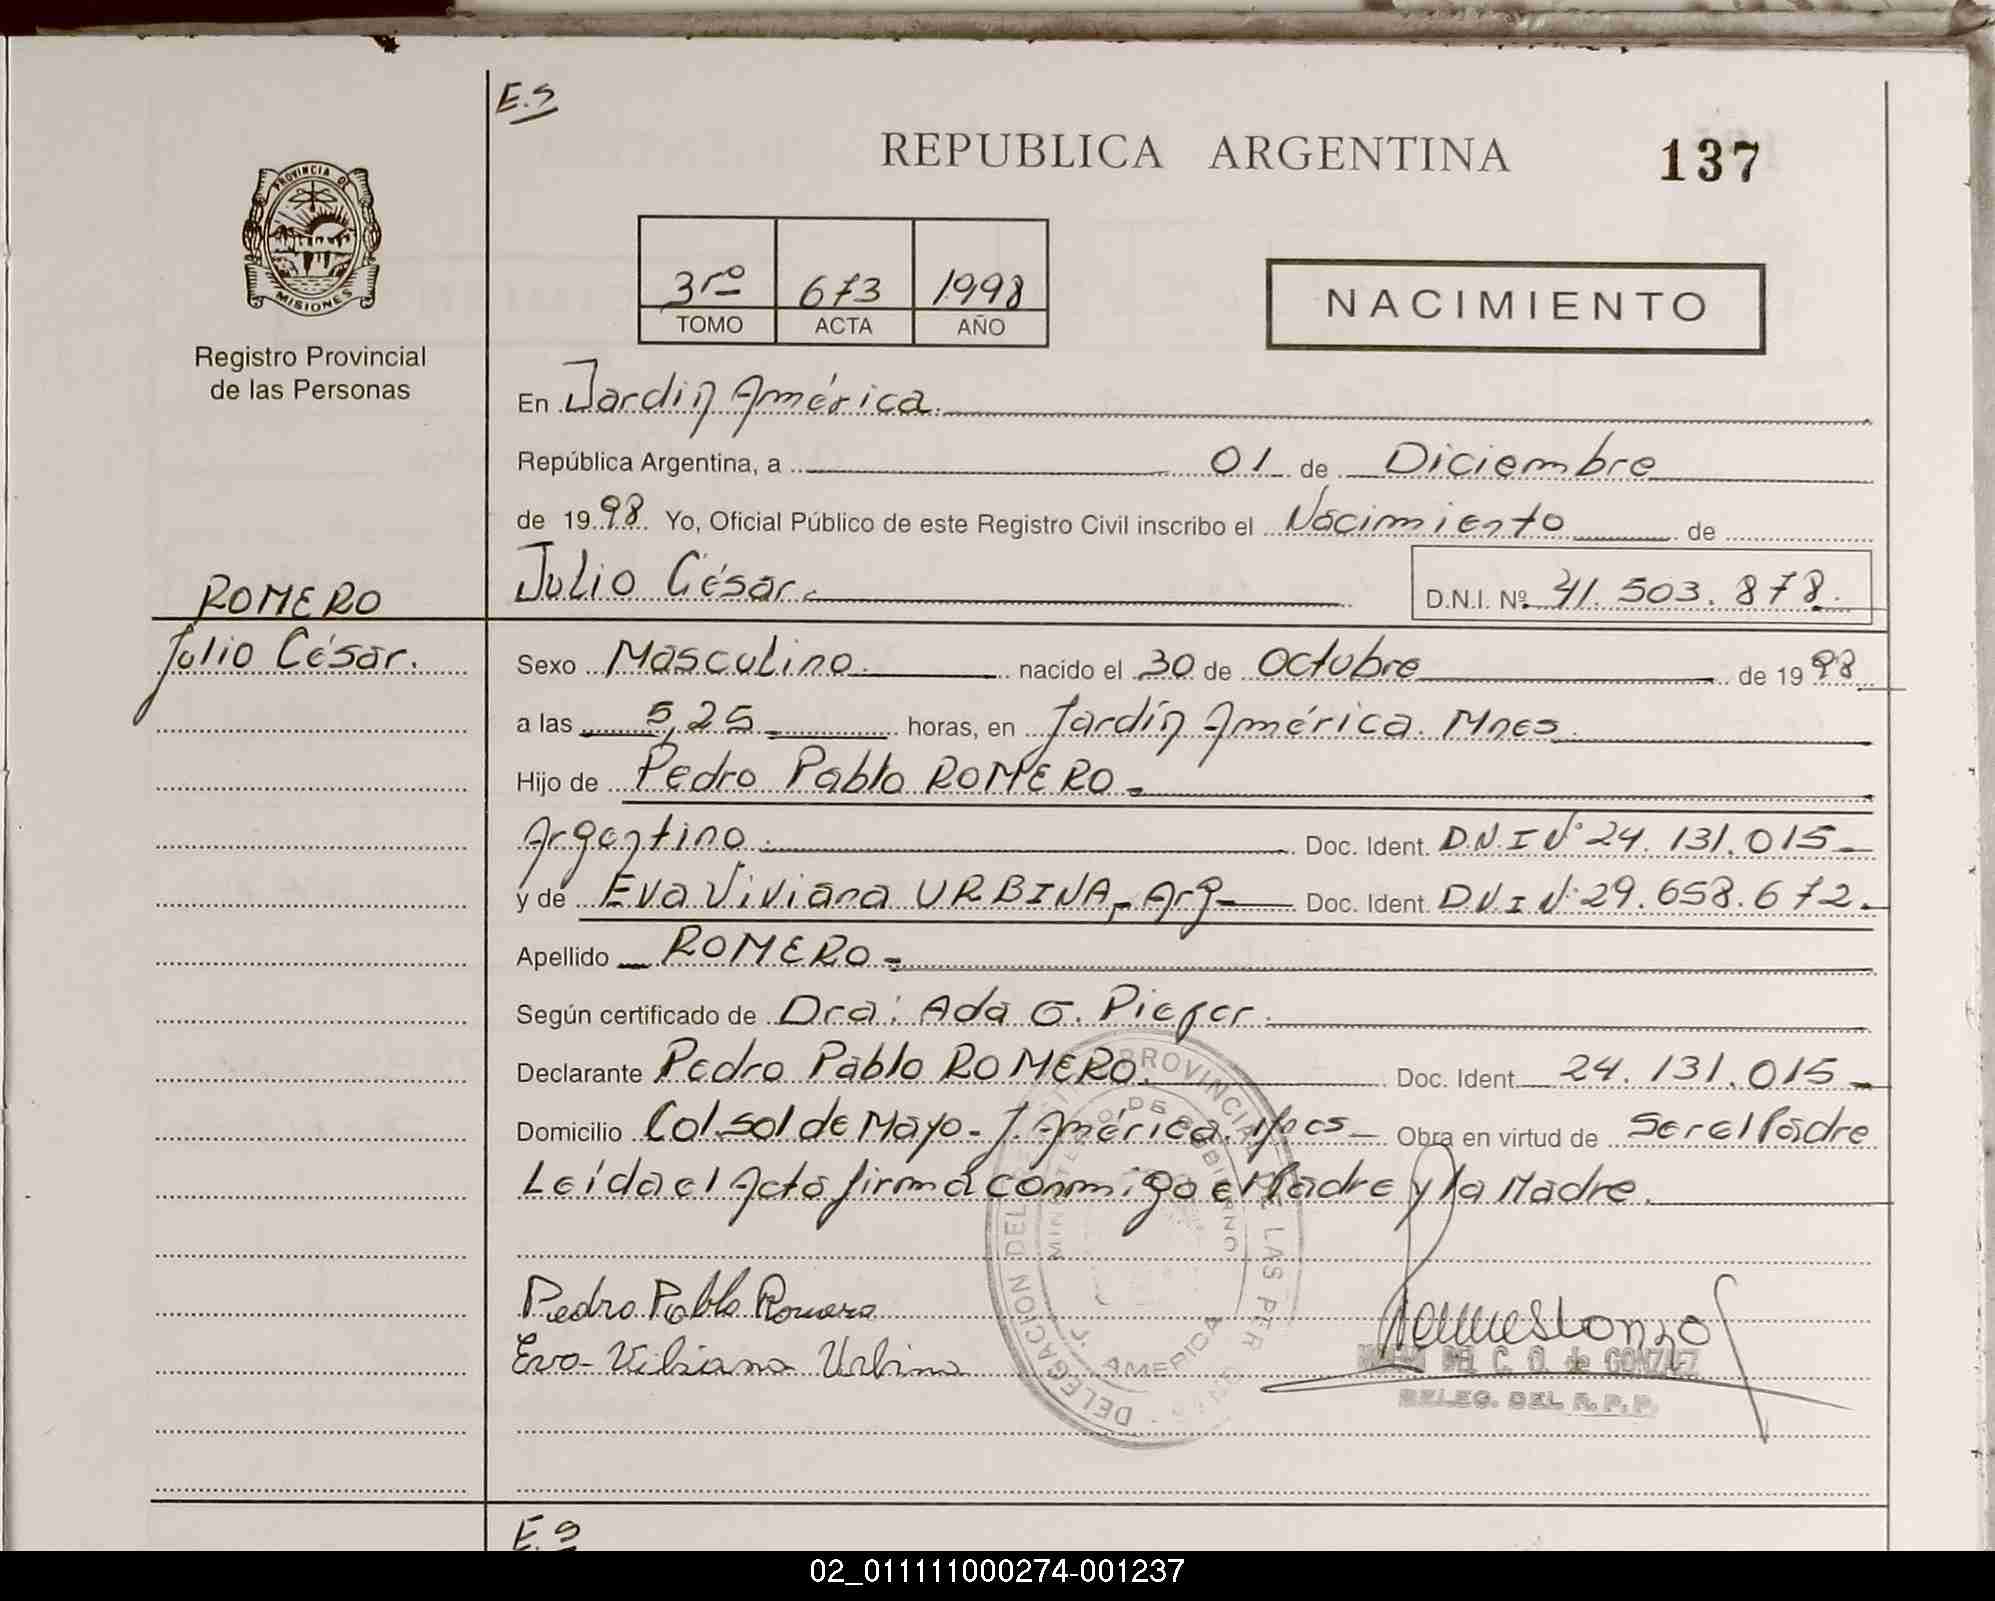 E.S
REPUBLICA ARGENTINA 137
PROVINCIA DE
MISIONES
Registro Provincial
de las Personas
3ro 673 1998
TOMO ACTA AÑO
NACIMIENTO
En Jardín América.
República Argentina, a 01 de Diciembre
de 1998 Yo, Oficial Público de este Registro Civil inscribo el Nacimiento de
ROMERO
Julio César.
Julio César. D.N.I. Nº 41.503.878.
Sexo Masculino. nacido el 30 de Octubre de 1998
a las 5,25 horas, en Jardín América. Mnes.
Hijo de Pedro Pablo ROMERO.
Argentino. Doc. Ident. D.N.I Nº 24.131.015
y de Eva Viviana URBINA, Arg. Doc. Ident. D.N.I N: 29.658.672.
Apellido ROMERO
Según certificado de Dra: Ada G.
Declarante Pedro Pablo ROMERO. Doc. Ident. 24.131.015
Domicilio Col. sol de Mayo - J. América. Mnes Obra en virtud de Ser el Padre
Leída el Acta firma conmigo el Padre y la Madre.
Pedro Pablo Romero
Eva Vibiana Urbina
DEL C. O. de GONZALEZ
DELEG. DEL R.P.P.
DELEGACION DEL PROVINCIAL DE LAS PER
MINISTERIO DE GOBIERNO
J. AMERICA
E.S
02_011111000274-001237